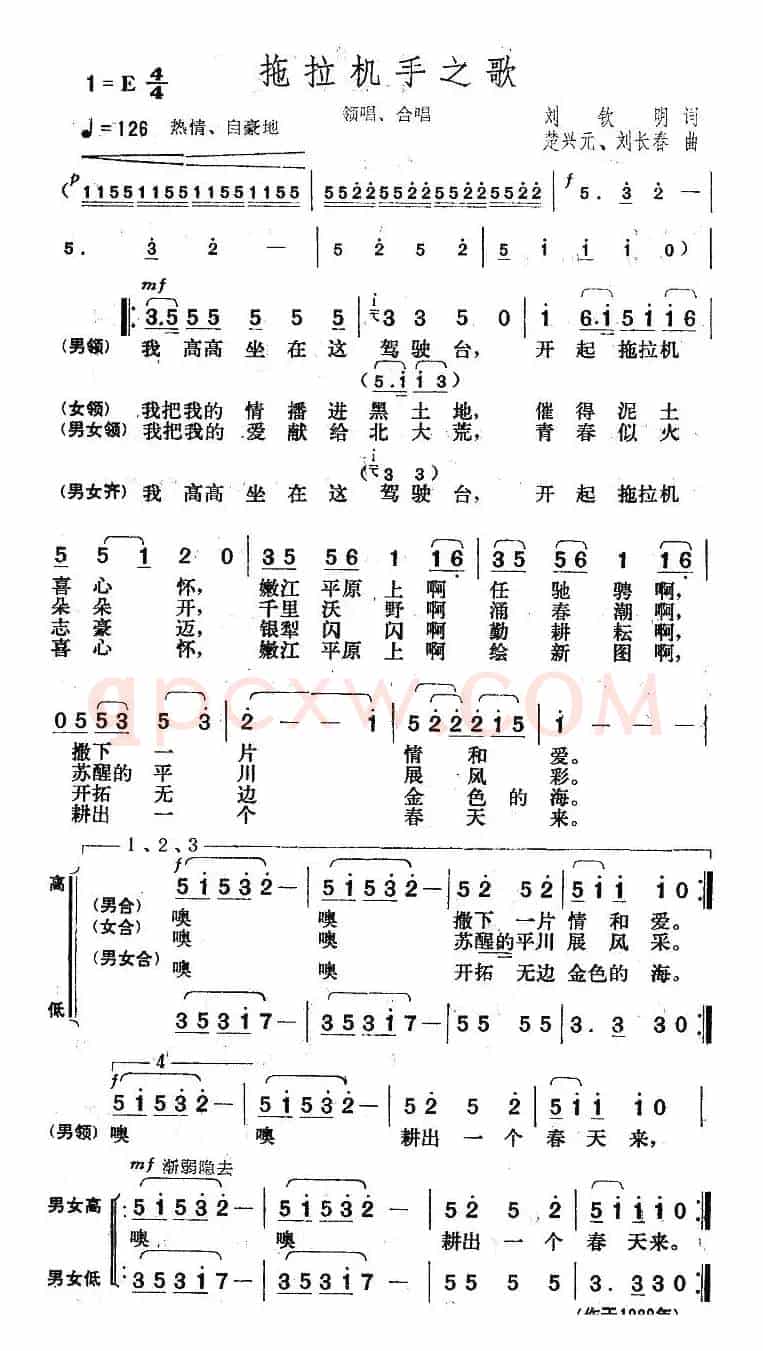 拖拉机手之歌
1=E 4/4
领唱、合唱
♩=126 热情、自豪地
刘钦明 词
楚兴元、刘长春 曲
(p 1155115511551155 | 5522552255225522 | f 5. 3 2 — |
5. 3 2 — | 5 2 5 2 | 5 i i i 0) |
mf
‖: 3.5 5 5 5 5 5 | 3 3 5 0 | i 6.i 5 i i 6 |
(男领) 我高高坐在这驾驶台, 开起拖拉机
(5.i i 3)
(女领) 我把我的情播进黑土地, 催得泥土
(男女领) 我把我的爱献给北大荒, 青春似火
(3 3)
(男女齐) 我高高坐在这驾驶台, 开起拖拉机
5 5 1 2 0 | 3 5 5 6 1 1 6 | 3 5 5 6 1 1 6 |
喜心怀, 嫩江平原上啊任驰骋啊,
朵朵开, 千里沃野啊涌春潮啊,
志豪迈, 银犁闪闪啊勤耕耘啊,
喜心怀, 嫩江平原上啊绘新图啊,
0 5 5 3 5 3 | 2 — — i | 5 2 2 2 i 5 | i — — — |
撒下一片情和爱。
苏醒的平川展风彩。
开拓无边金色的海。
耕出一个春天来。
qpcxw.COM
1、2、3
f
高 5 i 5 3 2 — | 5 i 5 3 2 — | 5 2 5 2 | 5 i i i 0 :‖
(男合) 噢 噢 撒下一片情和爱。
(女合) 噢 噢 苏醒的平川展风采。
(男女合) 噢 噢 开拓无边金色的海。
低 3 5 3 1 7 — | 3 5 3 1 7 — | 5 5 5 5 | 3. 3 3 0 :‖
4
f
5 i 5 3 2 — | 5 i 5 3 2 — | 5 2 5 2 | 5 i i i 0
(男领) 噢 噢 耕出一个春天来,
mf 渐弱隐去
男女高 5 i 5 3 2 — | 5 i 5 3 2 — | 5 2 5 2 | 5 i i i 0 :‖
噢 噢 耕出一个春天来。
男女低 3 5 3 1 7 — | 3 5 3 1 7 — | 5 5 5 5 | 3. 3 3 0 :‖